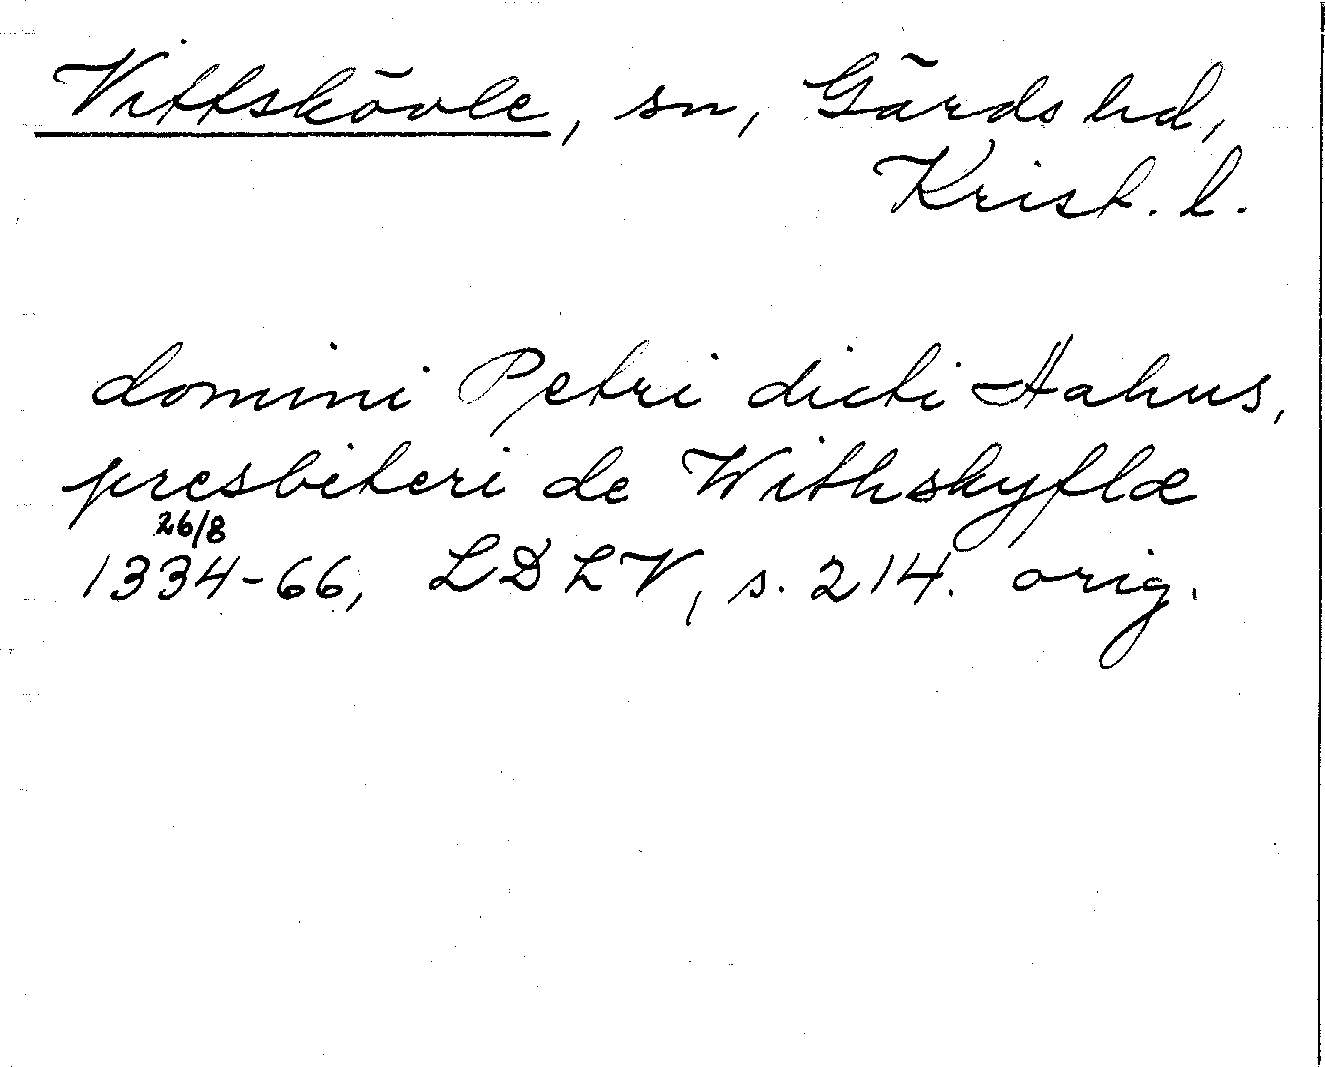 Vittskövle, sn, Gärds hd,
Krist. l.
domini Petri dicti Hahus,
presbiteri de Withskyflæ
26/8
1334-66, LDLV, s. 214. orig.